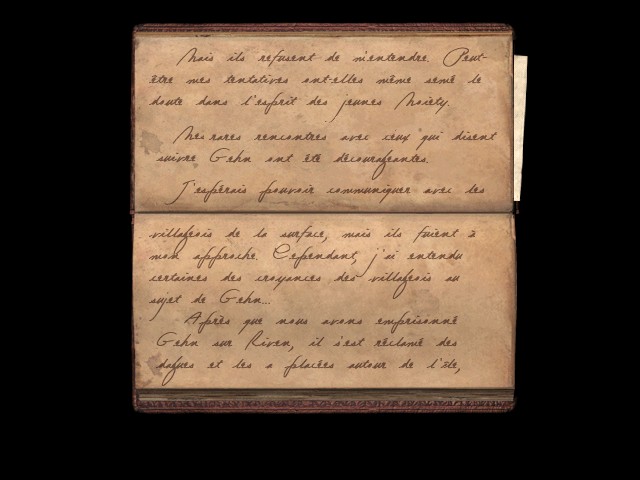 Mais ils refusent de m'entendre. Peut-
être mes tentatives ont-elles même semé le
doute dans l'esprit des jeunes Moiety.
Mes rares rencontres avec ceux qui disent
suivre Gehn ont été décourageantes.
J'espérais pouvoir communiquer avec des
villageois de la surface, mais ils fuient à
mon approche. Cependant, j'ai entendu
certaines des croyances des villageois au
sujet de Gehn...
Après que nous avons emprisonné
Gehn sur Riven, il s'est réclamé des
dagues et les a placées autour de l'île,